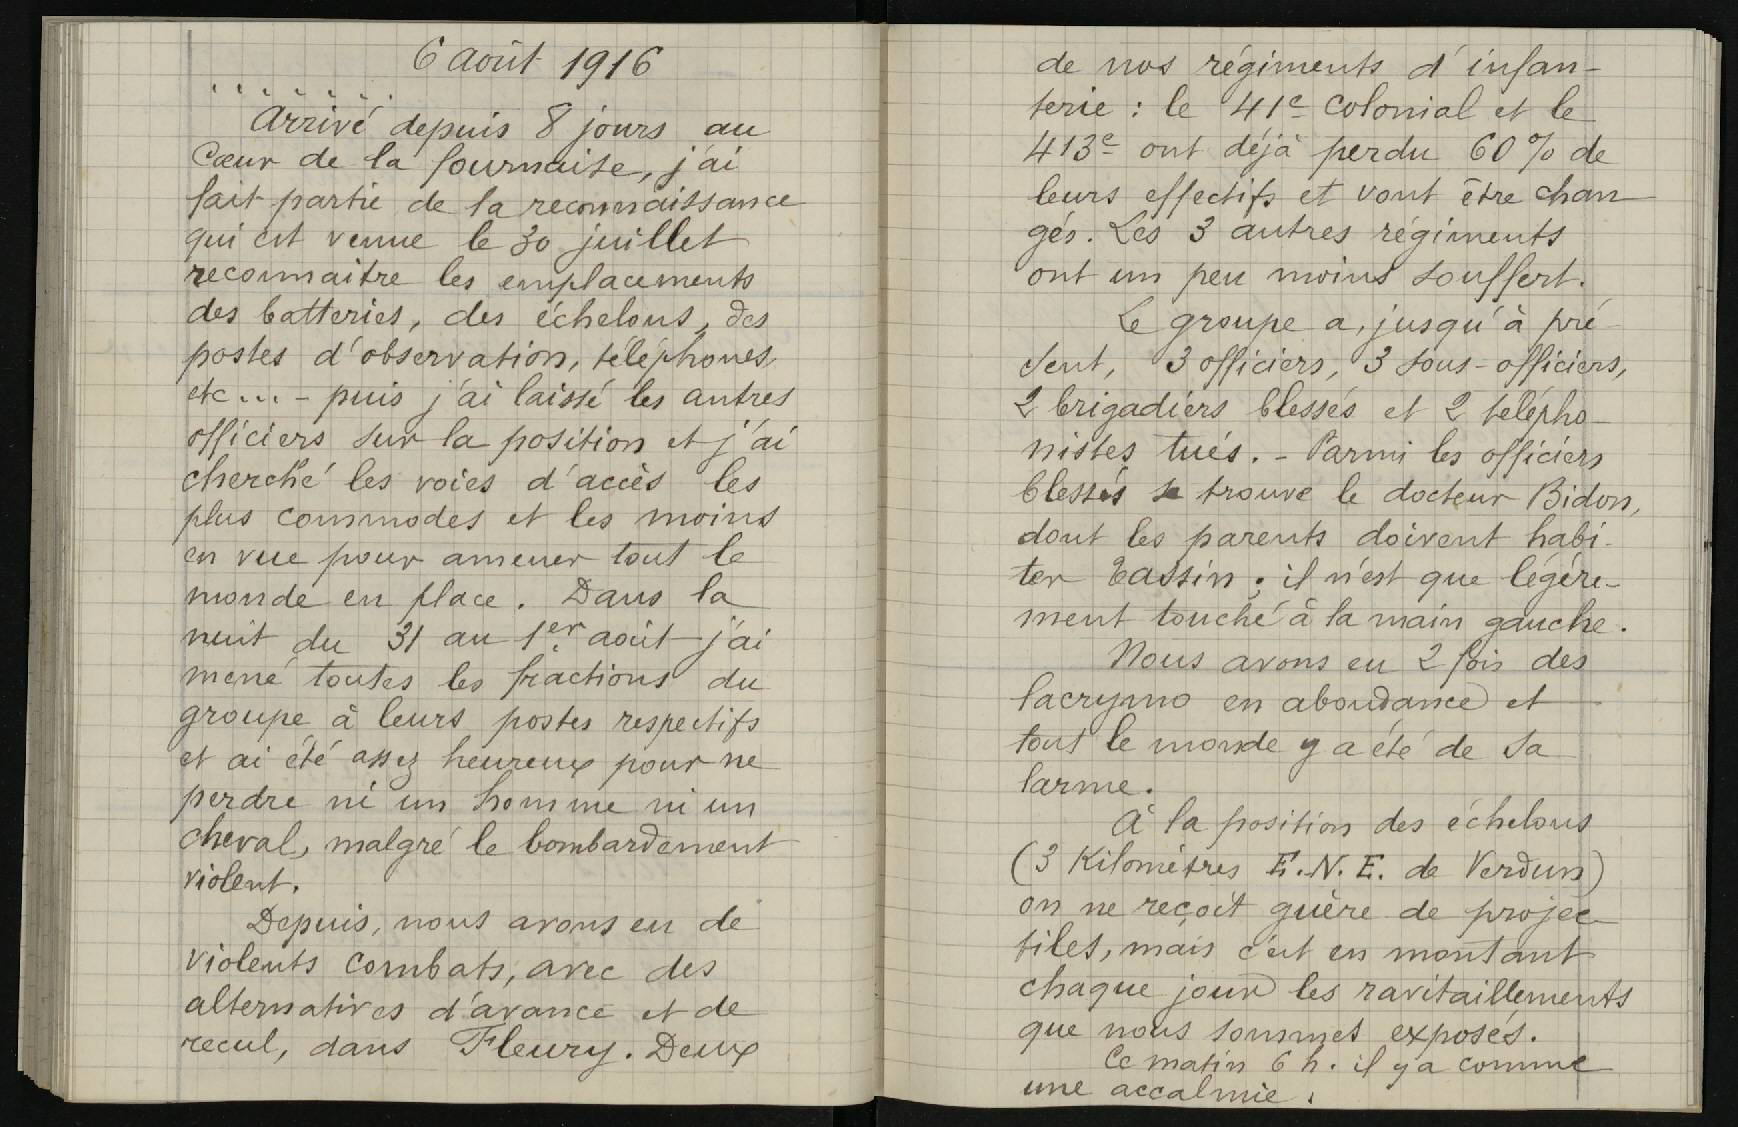 6 Août 1916
........
Arrivé depuis 8 jours au
Cœur de la fournaise, j'ai
fait partie de la reconnaissance
qui est venue le 30 juillet
reconnaitre les emplacements
des batteries, des échelons, des
postes d'observation, téléphones,
etc... - puis j'ai laissé les autres
officiers sur la position et j'ai
cherché les voies d'accès les
plus commodes et les moins
en vue pour amener tout le
monde en place. Dans la
nuit du 31 au 1er août j'ai
mené toutes les fractions du
groupe à leurs postes respectifs
et ai été assez heureux pour ne
perdre ni un homme ni un
cheval, malgré le bombardement
violent.
Depuis, nous avons eu de
violents combats, avec des
alternatives d'avance et de
recul, dans Fleury. Deux
de nos régiments d'infan-
terie : le 41e Colonial et le
413e ont déjà perdu 60% de
leurs effectifs et vont être chan
gés. Les 3 autres régiments
ont un peu moins souffert.
Le groupe a, jusqu'à pré
sent, 3 officiers, 3 sous-officiers,
2 brigadiers blessés et 2 télépho-
nistes tués. - Parmi les officiers
blessés se trouve le docteur Bidon,
dont les parents doivent habi-
ter Tassin ; il n'est que légére-
ment touché à la main gauche.
Nous avons eu 2 fois des
lacrymo en abondance et
tout le monde y a été de sa
larme.
À la position des échelons
(3 Kilomètres E.N.E. de Verdun)
on ne reçoit guère de projec-
tiles, mais c'est en montant
chaque jour les ravitaillements
que nous sommes exposés.
Ce matin 6 h. il y a comme
une accalmie.